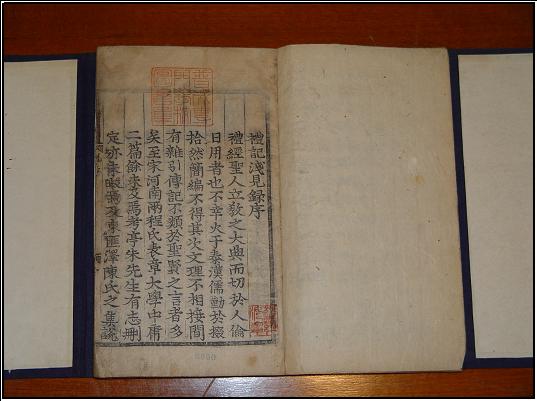 禮記淺見錄序
禮經聖人立敎之大典而切於人倫
日用者也不幸火于秦漢儒勤於掇
拾然簡編不得其次文理不相接間
有雜引傳記不類於聖賢之言者多
矣至宋河南兩程氏表章大學中庸
二篇餘未及焉考亭朱先生有志刪
定亦未暇焉及東匯澤陳氏之集說